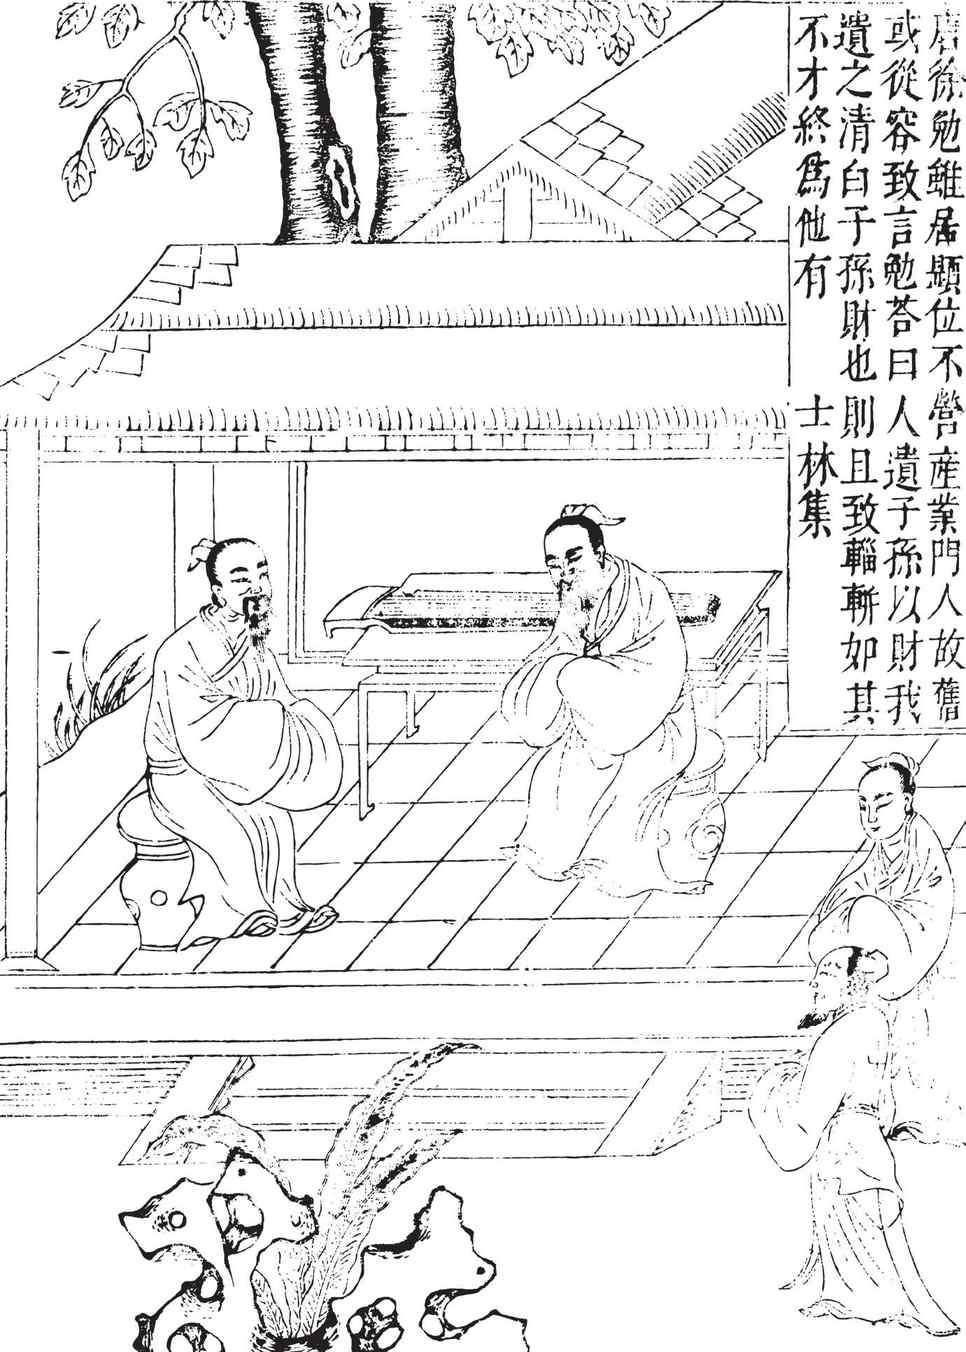 唐徐勉雖居顯位不營産業門人故舊
或從容致言勉荅曰人遺子孫以財我
遺之清白子孫財也則且致輜軿如其
不才終爲他有　士林集